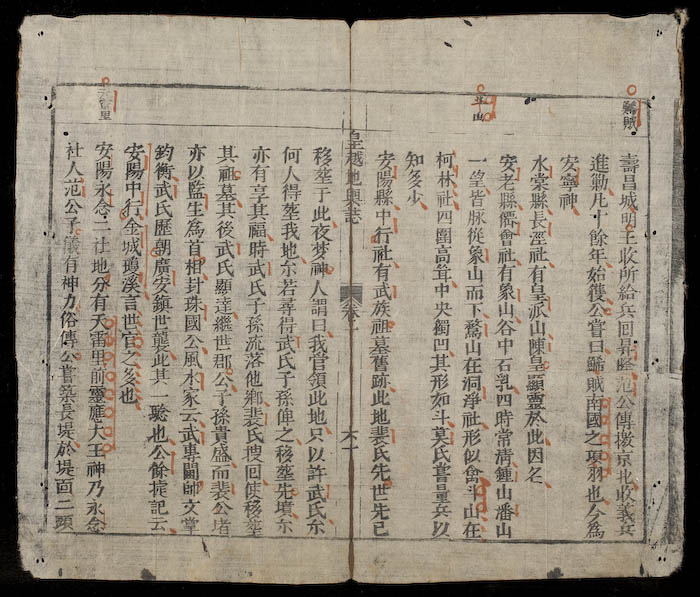 壽昌城明王收所給兵回昇隆范公傳撥京北收義兵
進勦凡十餘年始獲公嘗曰鯀賊南國之項羽也今爲
安寧神
水棠縣長涇社有皇派山陳皇顯靈於此因名
安老縣衢會社有象山谷中石乳四時常清鍾山潘山
一望皆脉從象山而下鶩山在洞淨社形似畲斗山在
柯林社四圍高耸中央獨凹其形如斗莫氏嘗量兵以
知多少
安陽縣中行社有武族祖墓舊跡此地裴氏先世先已
皇越地輿誌
卷一
移塟于此夜梦神人謂曰我官領此地只以許武氏尔
何人得塟我地尔若尋得武氏子孫俾之移塟先墳尔
亦有享其福時武氏子孫流落他鄉裴氏搜回使移塟
其祖墓其後武氏顯達繼世郡公子孫貴盛而裴公堵
亦以監生爲首相封珠國公風水家云武專閫帥文掌
鈞衡武氏歷朝廣安鎮世襲此其一驗也公餘捷記云
安陽中行金城鄧溪言世官之多也
安陽永念二社地分有天雷里前靈應大王神乃永念
社人范公子儀有神力俗傳公嘗築長堤於堤面二頭